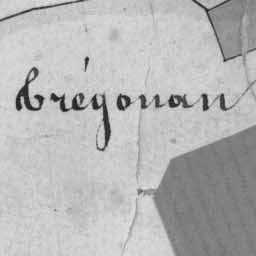 Trégonan